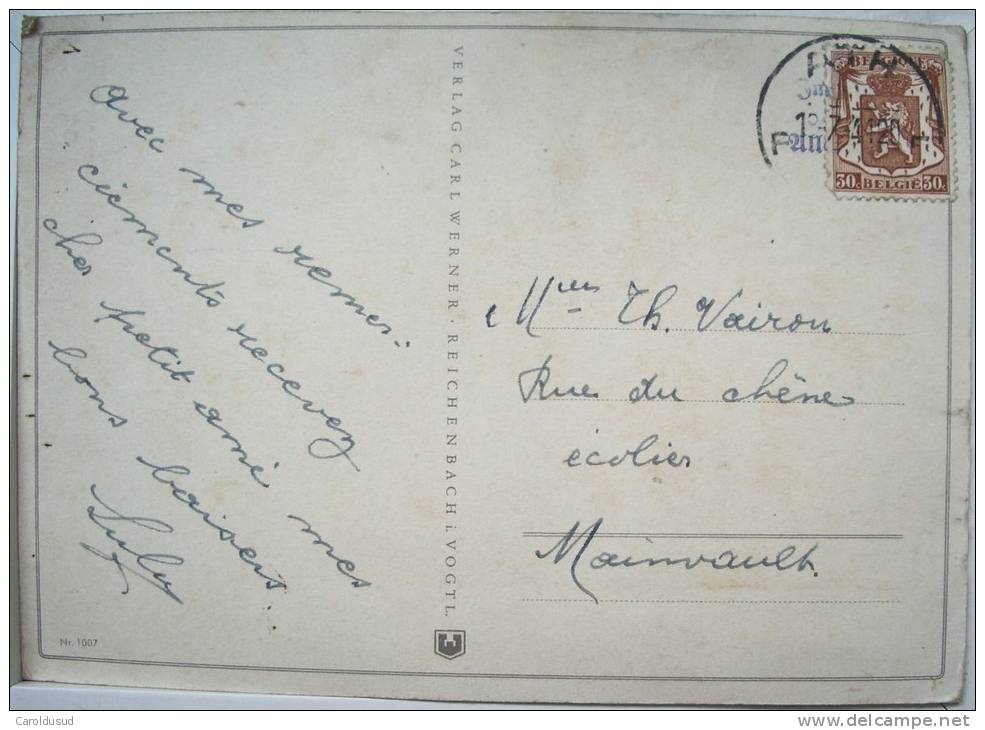 avec mes remer-
ciements recevez
cher petit ami mes
bons baisers
VERLAG CARL WERNER · REICHENBACH i. VOGTL.
Nr. 1007
ATH
BELGIQUE
30c BELGIË 30c
Th. Vairon
Rue du chêne
écolier
Mainvault.
Caroldusud
www.delcampe.net